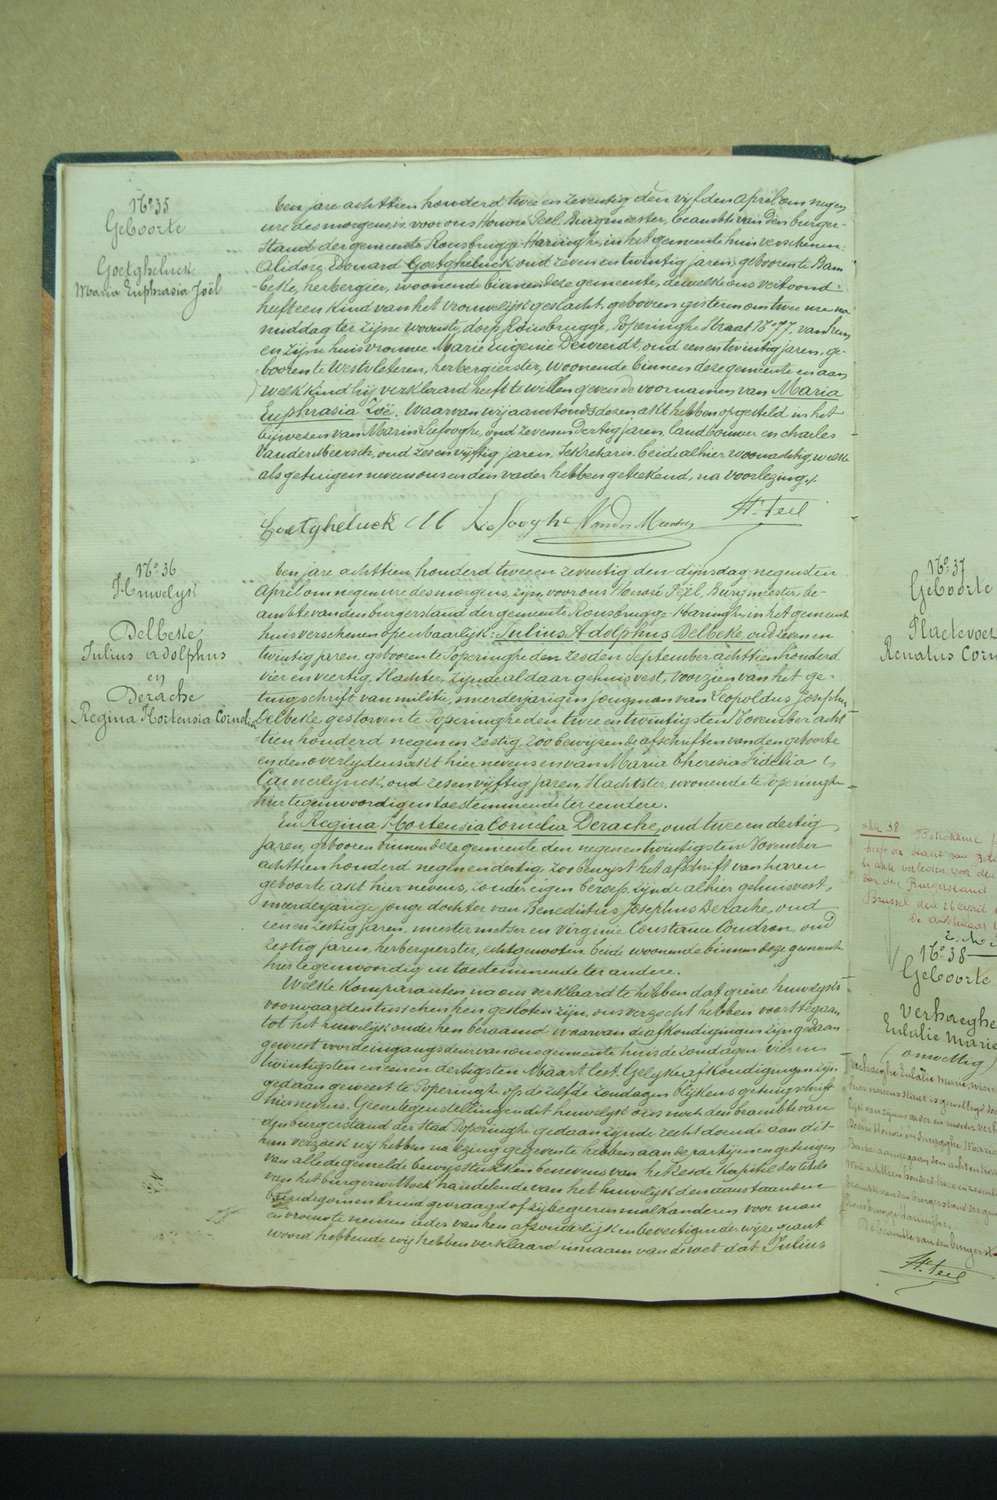 N° 35
Geboorte
Goetgheluck
Maria Euphrasia Joël
Ten jare achttien honderd twee en zeventig den vijfden April om negen
ure des morgens is voor ons Honoré Feil Burgmeester, beambte van den burger-
stand der gemeente Rousbrugge-Haringhe, in het gemeentehuis verschenen:
Alidorg Edouard Goetgheluck oud zeven en twintig jaren, geboren te Bam
beke, herbergier, woonende binnen deze gemeente, dewelke ons vertoond
heeft een kind van het vrouwelijk geslacht, geboren gisteren om twee ure na
middag ter zijne woonste, dorp Rousbrugge, Poperinghe Straat N° 77, van hem
en zijne huisvrouwe Marie Eugenie Deweerdt, oud een en twintig jaren, ge-
boren te Westvleteren, herbergierster, woonende binnen deze gemeente en aan
welk kind hij verklaard heeft te willen geven de voornamen van Maria
Euphrasia Zoë. Waarvan wij aanstonds dezen akt hebben opgesteld in het
bijwezen van Marin Lefooghe, oud zeven en dertig jaren, landbouwer en Charles
Vander Meersch, oud zes en vijftig jaren, Sekretaris, beide alhier woonachtig, welke
als getuigen nevens ons en den vader hebben geteekend, na voorlezing.
Goetgheluck M Lefooghe Vander Meersch H. Feil
N° 36
Huwelijk
Delbeke
Julius Adolphus
en
Derache
Regina Hortensia Cornelia
Ten jare achttien honderd twee en zeventig den dijnsdag negensten
April om negen ure des morgens, zijn voor ons Honoré Feil, Burgmeester, be-
ambte van den burgerstand der gemeente Rousbrugge Haringhe, in het gemeente
huis verschenen openbaarlijk: Julius Adolphus Delbeke, oud zeven en
twintig jaren, geboren te Poperinghe den zesden September achttien honderd
vier en veertig, Slachter, zijnde aldaar gehuisvest, voorzien van het ge-
tuigschrift van militie, meerderjarigen jongman van Leopoldus Josephus
Delbeke gestorven te Poperinghe den twee en twintigsten November acht
tien honderd negen en zestig, zoo bewijzen de afschriften van den geboorte
en den overlydens akt hier nevens en van Maria Theresia Fidelia
Camerlynck, oud zes en vijftig jaren, Slachtster, woonende te Poperinghe
hier tegenwoordig en toestemmende ter eendere.
En Regina Hortensia Cornelia Derache, oud twee en dertig
jaren, geboren binnen deze gemeente den negen en twintigsten November
achttien honderd negen en dertig, zoo bewijst het afschrift van haren
geboorte akt hier nevens, zonder eigen beroep, zijnde alhier gehuisvest,
meerderjarige jonge dochter van Benedictus Josephus Derache, oud
een en zestig jaren, meester metser en Virginie Constance Coudron, oud
zestig jaren, herbergierster, echtgenooten beide woonende binnen deze gemeente
hier tegenwoordig en toestemmende ter andere.
Welke komparanten na ons verklaard te hebben dat geene huwelijks
voorwaarden tusschen hen gesloten zijn, ons verzocht hebben voort te gaan
tot het huwelijk onder hen beraamd waarvan de afkondigingen zijn gedaan
geweest voor de ingangsdeur van ons gemeente huis de zondagen vier en
twintigsten en een en dertigsten Maart lest. Gelijke afkondigingen zijn
gedaan geweest te Poperinghe op de zelfde zondagen blijkens getuigschrift
hier nevens. Geene tegenstellingen dit huwelijk ons noch den beambte van
den burgerstand der Stad Poperinghe gedaan zijnde recht doende aan dit
hun verzoek wij hebben na lezing gegeven te hebben aan de partijen en getuigen
van alle de gemelde bewijsstukken benevens van het zesde kapittel des titels
van het burgerwetboek handelende van het huwelijk den aanstaanden
bruidegom en bruid gevraagd of zij begeeren malkanderen voor man
en vrouw te nemen ieder van hen afzonderlijk en bevestigender wijze geant
woord hebbende wij hebben verklaard in naam van de wet dat Julius
N° 37
Geboorte
Plaetevoet
Renatus Corn
akte 38
N° 38
Geboorte
Verhaeghe
Eulalie Marie
(onwettig)
H. Feil